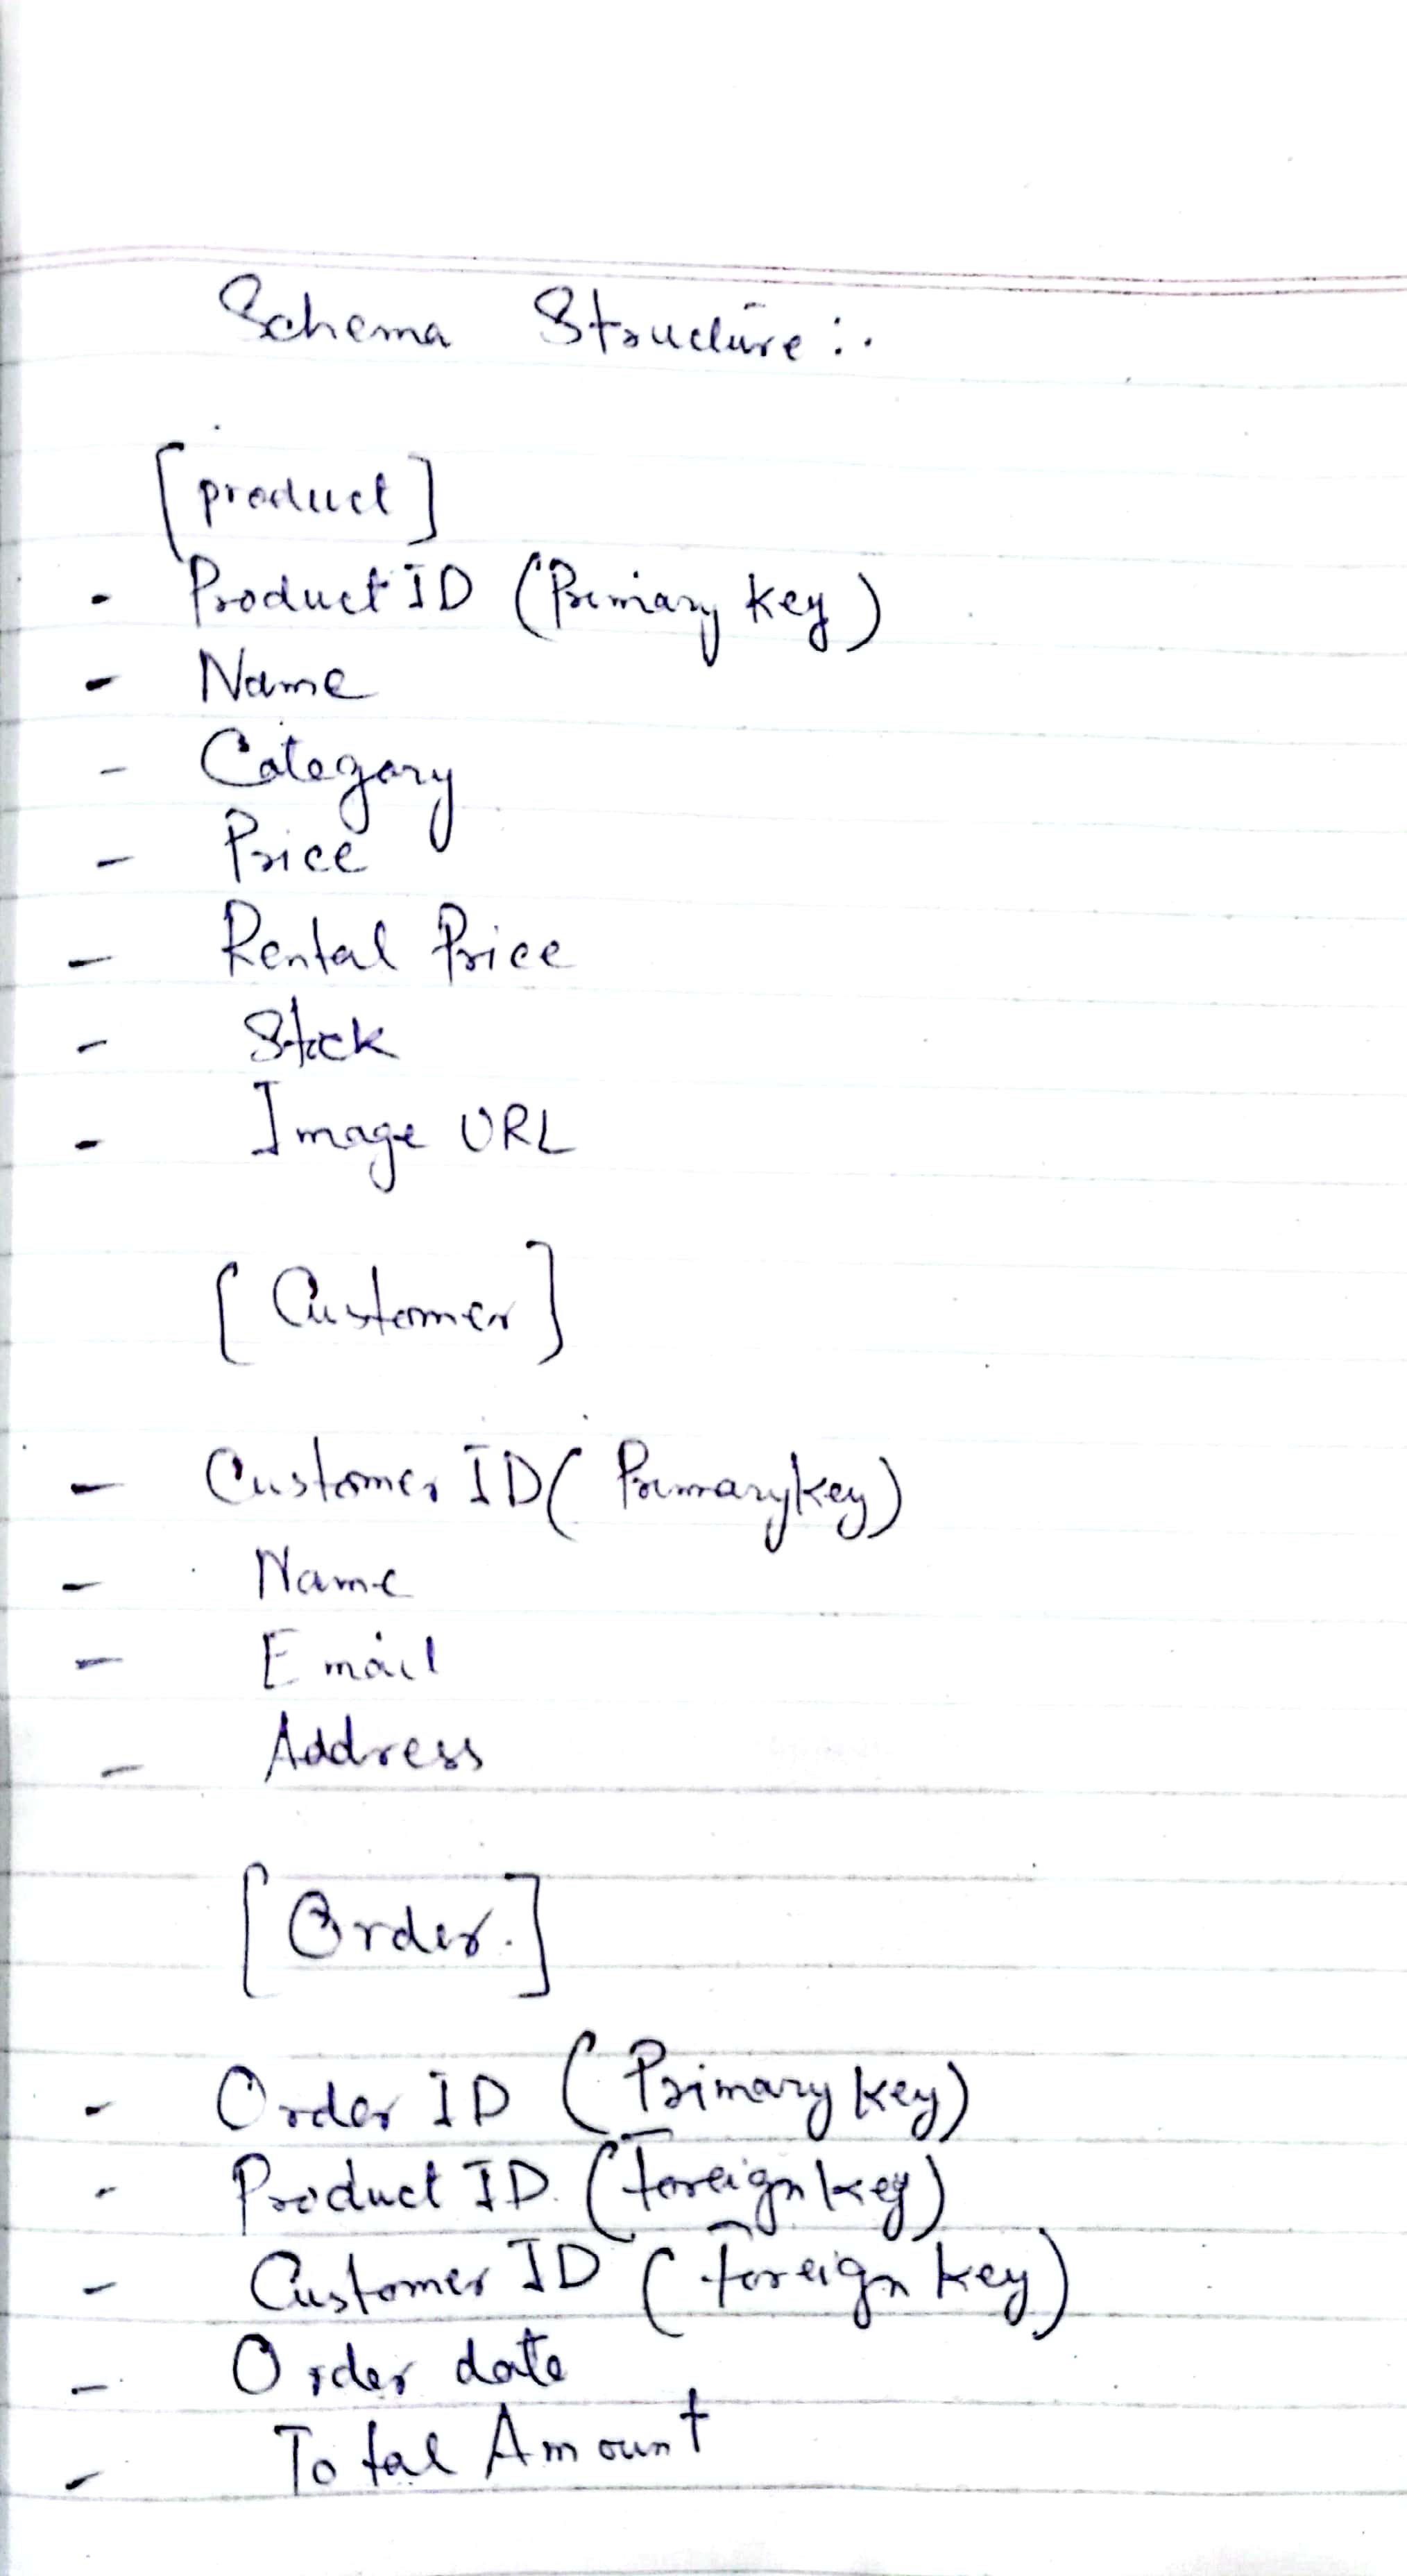 Schema Structure :.
[product]
- Product ID (Primary key)
- Name
- Category
- Price
- Rental Price
- Stock
- Image URL
[Customer]
- Customer ID (Primary key)
- Name
- Email
- Address
[Order.]
- Order ID (Primary key)
- Product ID. (Foreign key)
- Customer ID (Foreign key)
- Order date
- Total Amount